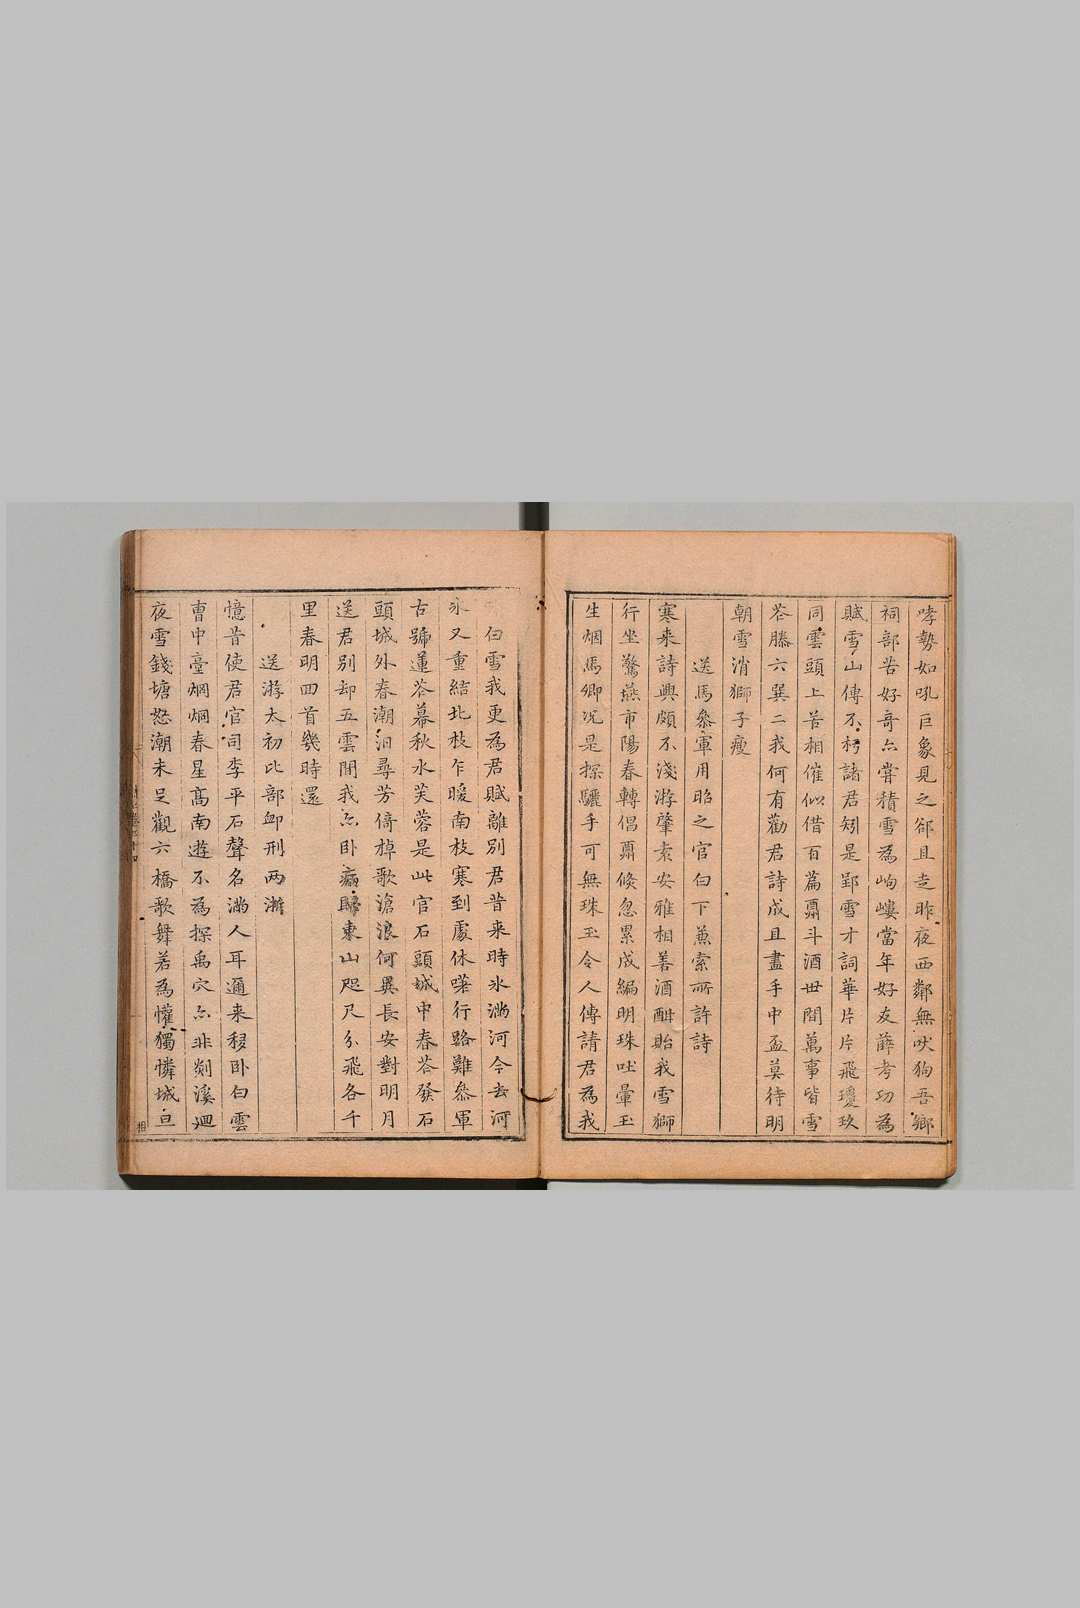 哮勢如吼巨象見之郤且走昨夜西鄰無吠狗吾鄉
祠部苦好奇亦嘗積雪為峋嶁當年好友薛考功為
賦雪山傳不朽諸君矧是郢雪才詞華片片飛瓊玖
同雲頭上苦相催似借百篇需斗酒世間萬事皆雪
苍滕六巽二我何有勸君詩成且盡手中盃莫待明
朝雪消獅子瘦
送馬叅軍用昭之官白下兼索所許詩
寒来詩興頗不淺游肇素安雅相善酒酣貽我雪獅
行坐驚燕市陽春轉倡酬倏忽累成編明珠吐暈玉
生烟馬卿况是探驪手可無珠玉令人傳請君為我
白雪我更為君賦離別君昔来時氷滿河今去河
氷又重結北枝乍暖南枝寒到處休嗟行路難叅軍
古號蓮苍幕秋水芙蓉是此官石頭城中春苍發石
頭城外春潮汩尋芳倚棹歌滄浪何異長安對明月
送君別却五雲間我亦卧痾歸東山咫尺分飛各千
里春明回首幾時還
送游太初比部卹刑两浙
憶昔使君官司李平石聲名滿人耳邇来移卧白雲
曹中臺烱烱春星高南遊不為探禹穴亦非剡溪迴
夜雪錢塘怒潮未足觀六橋歌舞若為懽獨憐城旦